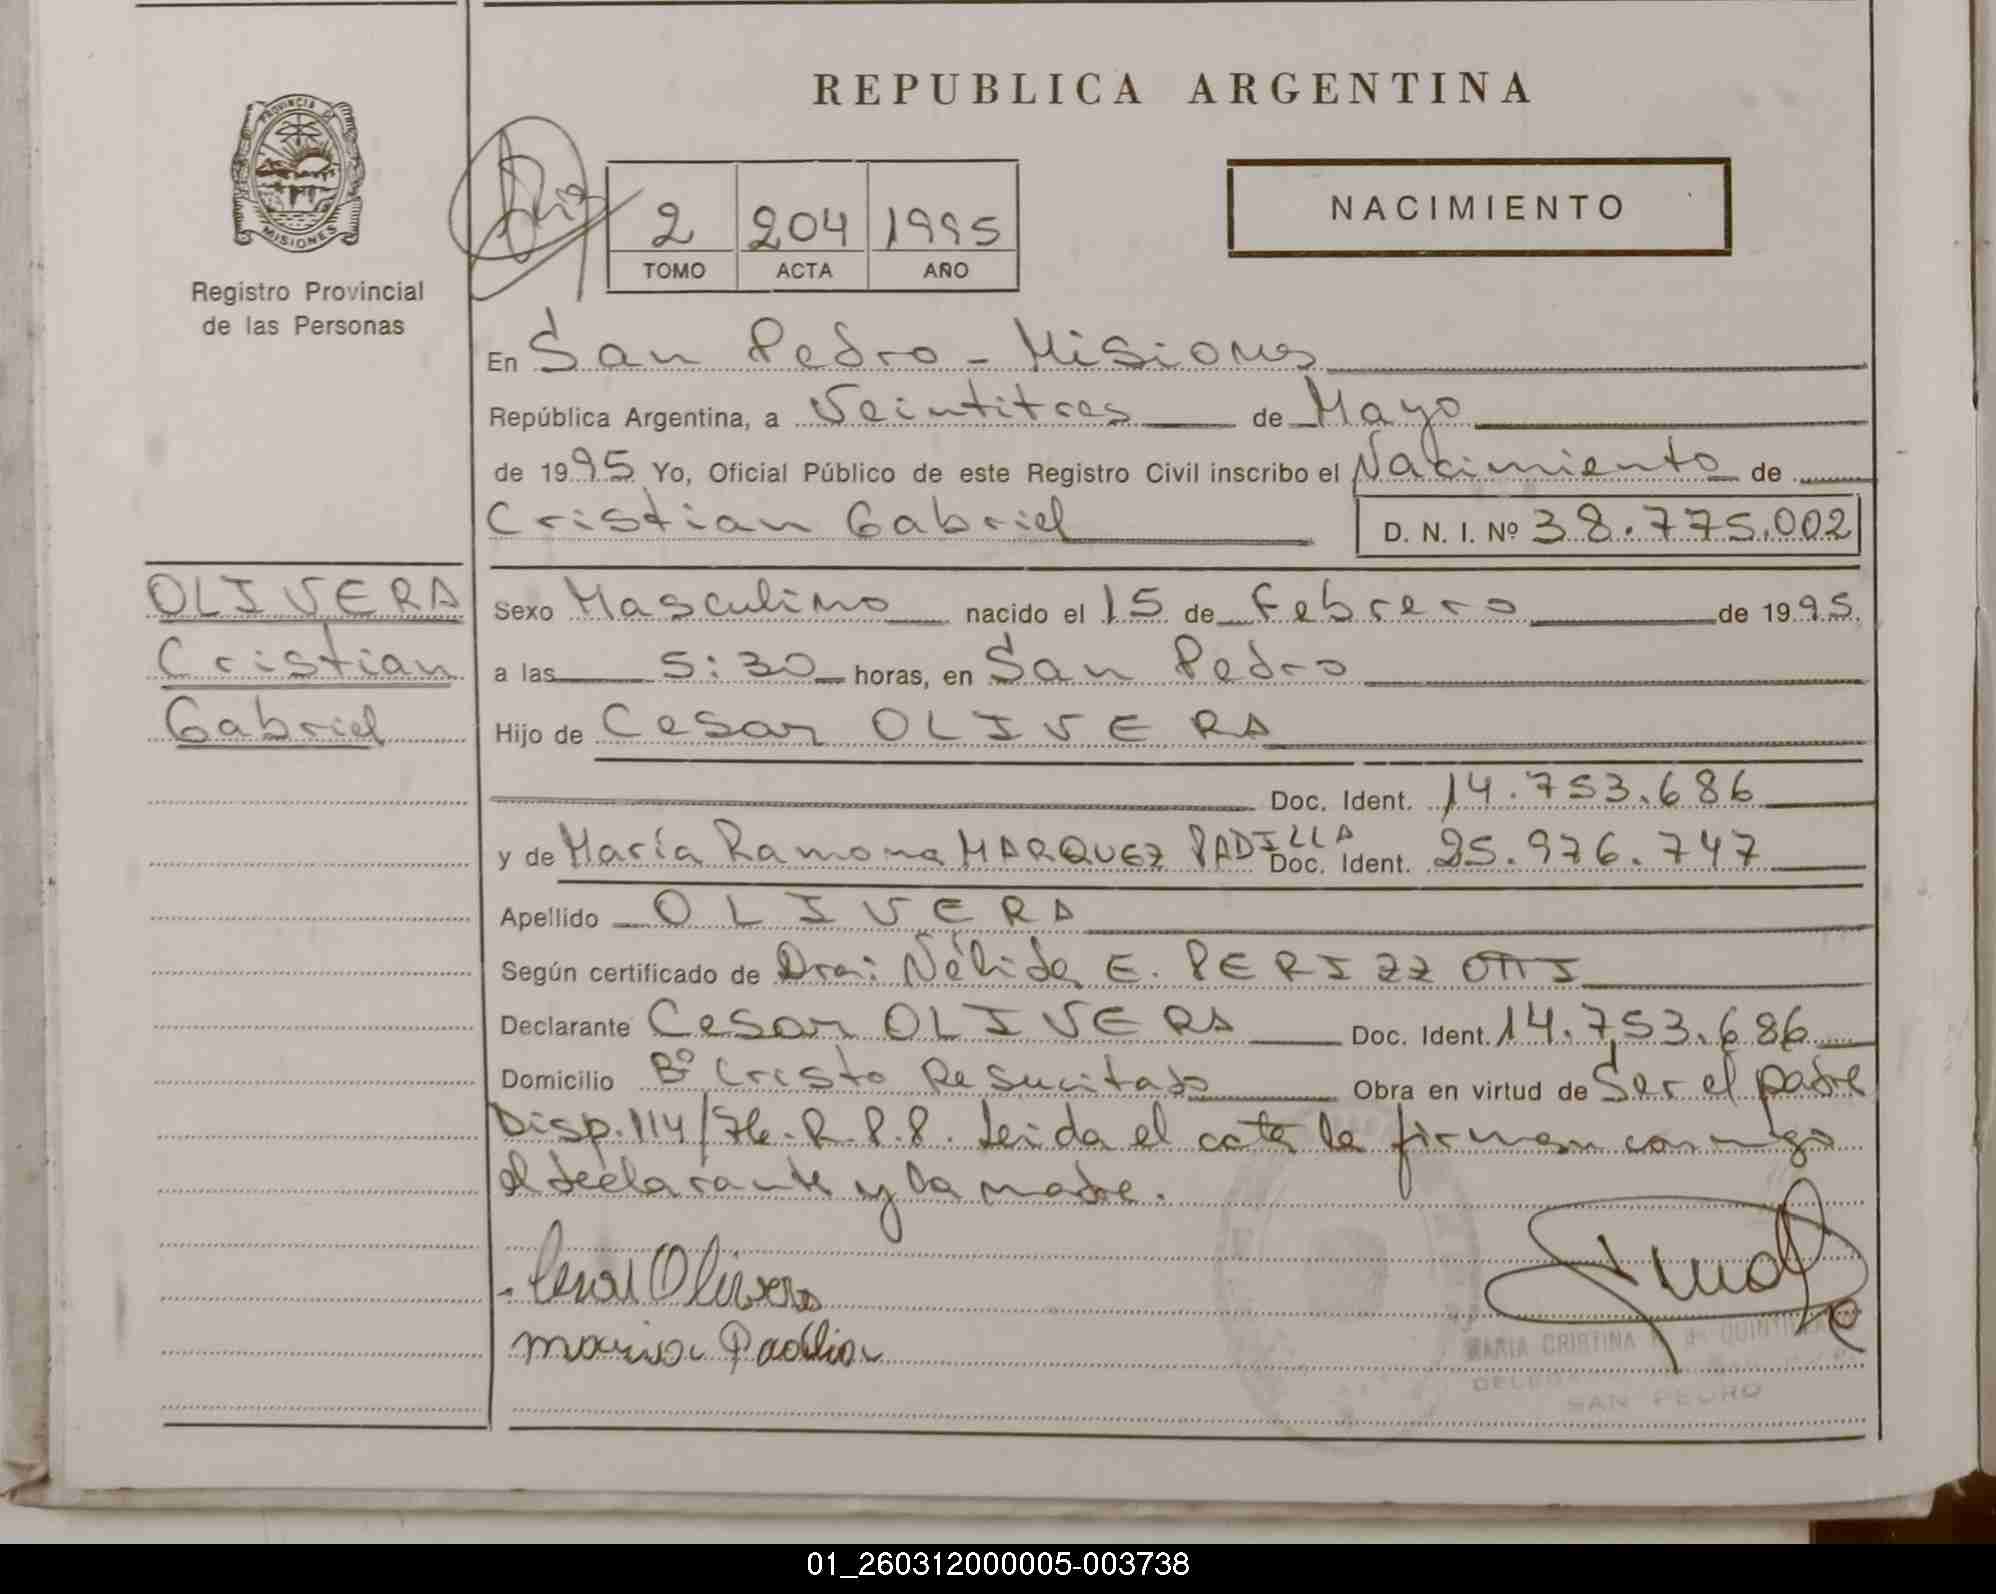 REPUBLICA ARGENTINA
PROVINCIA DE
MISIONES
Registro Provincial
de las Personas
2 204 1995
TOMO ACTA AÑO
NACIMIENTO
En San Pedro - Misiones
República Argentina, a Veintitres de Mayo
de 1995 Yo, Oficial Público de este Registro Civil inscribo el Nacimiento de
Cristian Gabriel D. N. I. Nº 38.775.002
OLIVERA
Cristian
Gabriel
Sexo Masculino nacido el 15 de Febrero de 1995.
a las 5:30 horas, en San Pedro
Hijo de Cesar OLIVERA
Doc. Ident. 14.753.686
y de María Ramona MARQUEZ PADILLA Doc. Ident. 25.976.747
Apellido OLIVERA
Según certificado de Dra: Nélida E. PERIZZOTTI
Declarante Cesar OLIVERA Doc. Ident. 14.753.686
Domicilio Bº Cristo Resucitado Obra en virtud de Ser el padre
Disp. 114/76-R.P.P. Leida el acta la firman conmigo
el declarante y la madre.
Cesar Olivera
Maria Padilla
MARIA CRISTINA
SAN PEDRO
01_260312000005-003738